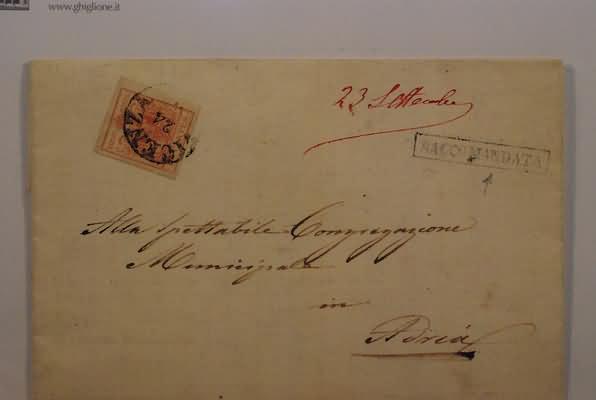 www.ghiglione.it
23 Settembre
24
RACCOMANDATA
Alla Spettabile Congregazione
Municipale
in
Adria